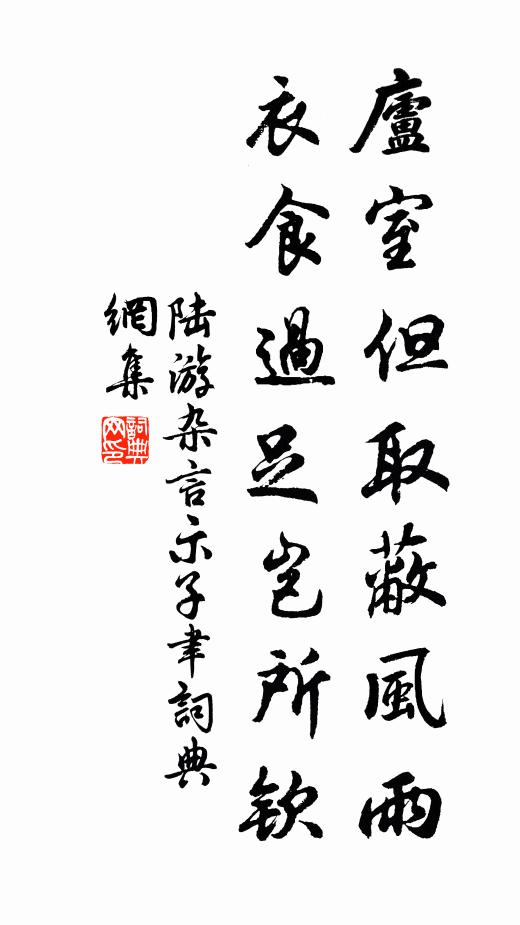 廬室但取蔽風雨
衣食過足豈所欽
陆游杂言示子聿詞典
網集
詞典网印